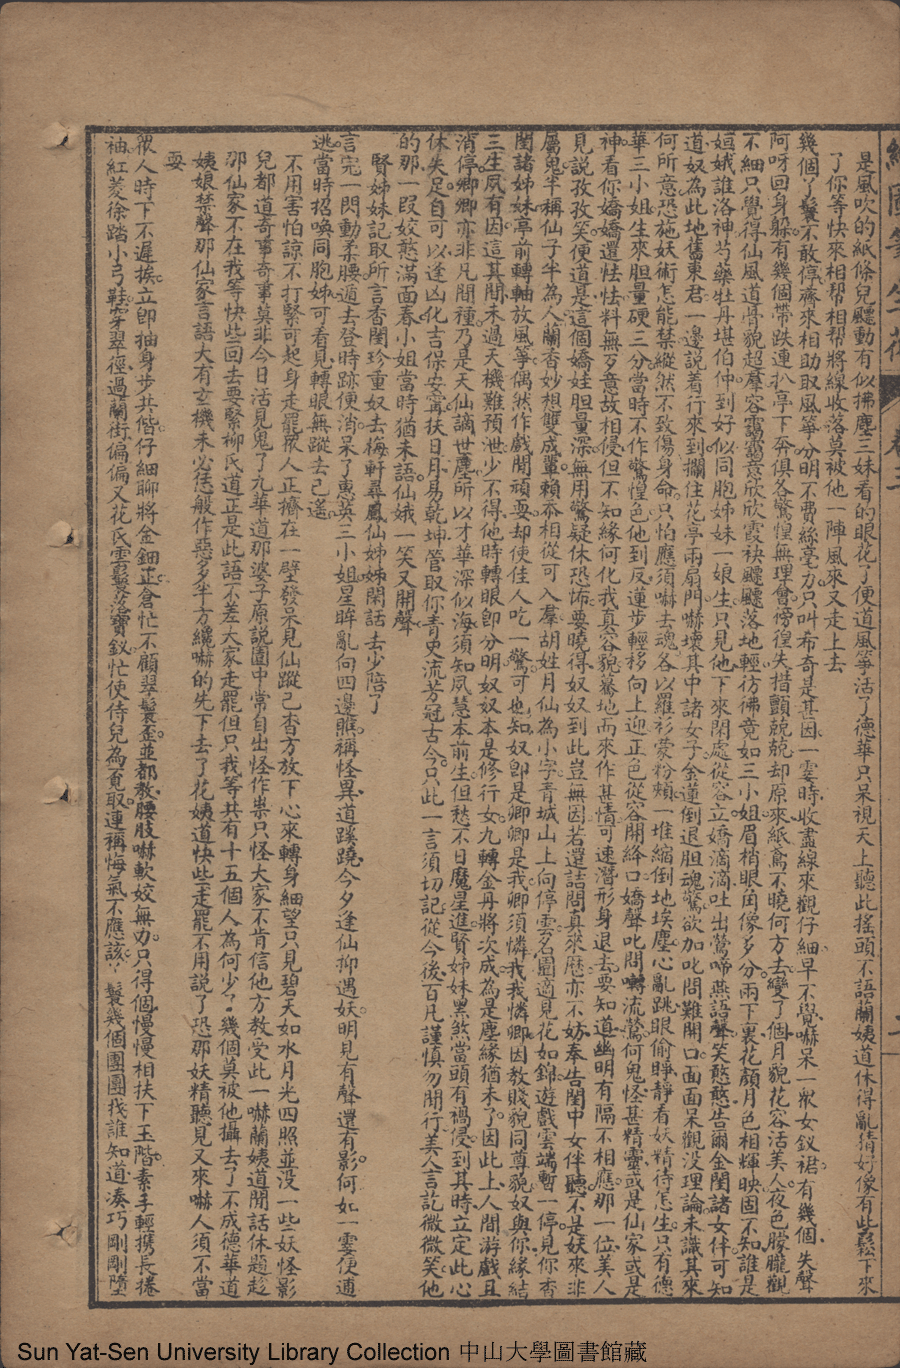 繪圖筆生花 卷三
是風吹的紙條兒飄動有似拂塵三妹看的眼花了便道風箏活了德華只呆視天上聽此搖頭不語蘭姨道休得亂猜好像有些鬆下來
了你等快來相幫相幫將線收落莫被他一陣風來又走上去
幾個丫鬟不敢停齊來相助取風箏分明不費絲毫力只叫希奇是甚因一霎時收盡線來觀仔細早不覺嚇呆一眾女釵裙有幾個失聲
阿呀回身躲有幾個帶跌連扒亭下奔俱各驚惶無理會徬徨失措顫兢兢却原來紙鳶不曉何方去變了個月貌花容活美人夜色朦朧觀
不細只覺得仙風道骨貌超羣容靄靄意欣欣霞袂飄飄落地輕彷彿竟如三小姐眉梢眼角像多分兩下裏花顏月色相輝映固不知誰是
姮娥誰洛神芍藥牡丹堪伯仲到好似同胞姊妹一娘生只見他下來閑處從容立嬌滴滴吐出鶯啼燕語聲笑憨憨告爾金閨諸女伴可知
道奴為此地舊東君一邊說着行來到攔住花亭兩扇門嚇壞其中諸女子金蓮倒退胆魂驚欲加叱問難開口面面呆觀沒理論未識其來
何所意恐施妖術怎能禁縱然不致傷身命只怕應須嚇去魂各以羅衫蒙粉頰一堆縮倒地埃塵心亂跳眼偷睜靜看妖精待怎生只有德
華三小姐生來胆量硬三分當時不作驚惶色他到反蓮步輕移向上迎正色從容開絳口嬌聲叱問囀流鶯何鬼怪甚精靈或是仙家或是
神看你嬌嬌還怯怯料無歹意故相侵但不知緣何化我真容貌驀地而來作甚情可速潛形身退去要知道幽明有隔不相應那一位美人
見說孜孜笑便道是這個嬌娃胆量深無用驚疑休恐怖要曉得奴奴到此豈無因若還詰問真來歷亦不妨奉告閨中女伴聽不是妖來非
屬鬼半稱仙子半為人蘭香妙想雙成輩賴忝相從可入羣胡姓月仙為小字青城山上向停雲名園適見花如錦遊戲雲端暫一停見你香
閨諸姊妹亭前轉軸放風箏偶然作戲閒頑耍却使佳人吃一驚可也知奴卽是卿卿是我卿須憐我我憐卿因教賤貌同尊貌奴與你緣結
三生夙有因這其間未過天機難預泄少不得他時轉眼卽分明奴奴本是修行女九轉金丹將次成為是塵緣猶未了因此上人間游戲且
消停卿卿亦非凡間種乃是天仙謫世塵所以才華深似海須知夙慧本前生但愁不日魔星進賢姊妹黑煞當頭有禍侵到其時立定此心
休失足自可以逢凶化吉保安寗扶日月易乾坤管取你青史流芳冠古今只此一言須切記從今後百凡謹慎勿閒行美人言訖微微笑他
的那一段姣憨滿面春小姐當時猶未語仙娥一笑又開聲
賢姊妹記取所言香閨珍重奴去梅軒尋鳳仙姊姊閒話去少陪了
言完一閃動柔腰遁去登時跡便消呆了惠英三小姐星眸亂向四邊瞧稱怪異道蹊蹺今夕逢仙抑遇妖明見有聲還有影何如一霎便逋
逃當時招喚同胞姊可看見轉眼無蹤去已遙
不用害怕諒不打緊可起身走罷眾人正擠在一壁發呆見仙蹤已杳方放下心來轉身細望只見碧天如水月光四照並没一些妖怪影
兒都道奇事奇事莫非今日活見鬼了九華道那婆子原說園中常自出怪作祟只怪大家不肯信他方教受此一嚇蘭姨道閒話休題趁
那仙家不在我等快些回去要緊柳氏道正是此語不差大家走罷但只我等共有十五個人為何少了幾個莫被他攝去了不成德華道
姨娘禁聲那仙家言語大有玄機未必徒般作惡多半方纔嚇的先下去了花姨道快些走罷不用說了恐那妖精聽見又來嚇人須不當
耍
眾人時下不遲挨立卽抽身步共偕仔細聊將金鈿芷倉忙不顧翠鬟歪並都教腰肢嚇軟姣無力只得個慢慢相扶下玉階素手輕携長捲
袖紅菱徐踏小弓鞋穿翠徑過蘭街偏偏又花氏雲鬟落寶釵忙使侍兒為覓取連稱悔氣不應該丫鬟幾個團團找誰知道湊巧剛剛墮
Sun Yat-Sen University Library Collection 中山大學圖書館藏